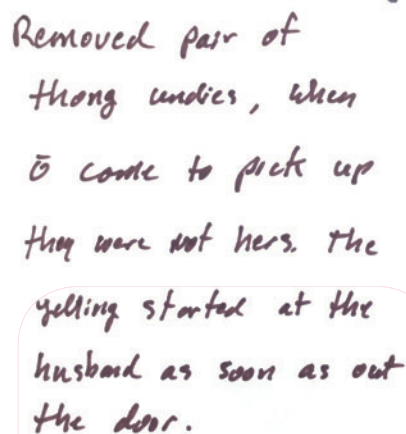 Removed pair of
thong undies, when
ō come to pick up
they were not hers. The
yelling started at the
husband as soon as out
the door.